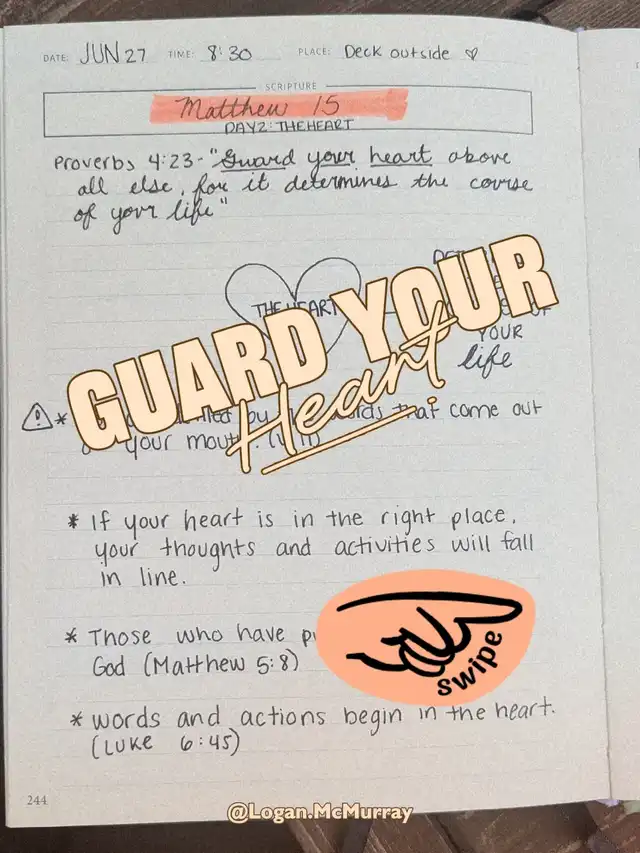 DATE: JUN 27 TIME: 8:30 PLACE: Deck outside
SCRIPTURE
Matthew 15
DAY 2: THE HEART
Proverbs 4:23 - "Guard your heart above
all else, for it determines the course
of your life"
THE HEART
YOUR
life
GUARD YOUR
Heart
* by that come out
your mouth.
* If your heart is in the right place,
your thoughts and activities will fall
in line.
* Those who have
God (Matthew 5:8)
swipe
* words and actions begin in the heart.
(Luke 6:45)
244
@Logan.McMurray